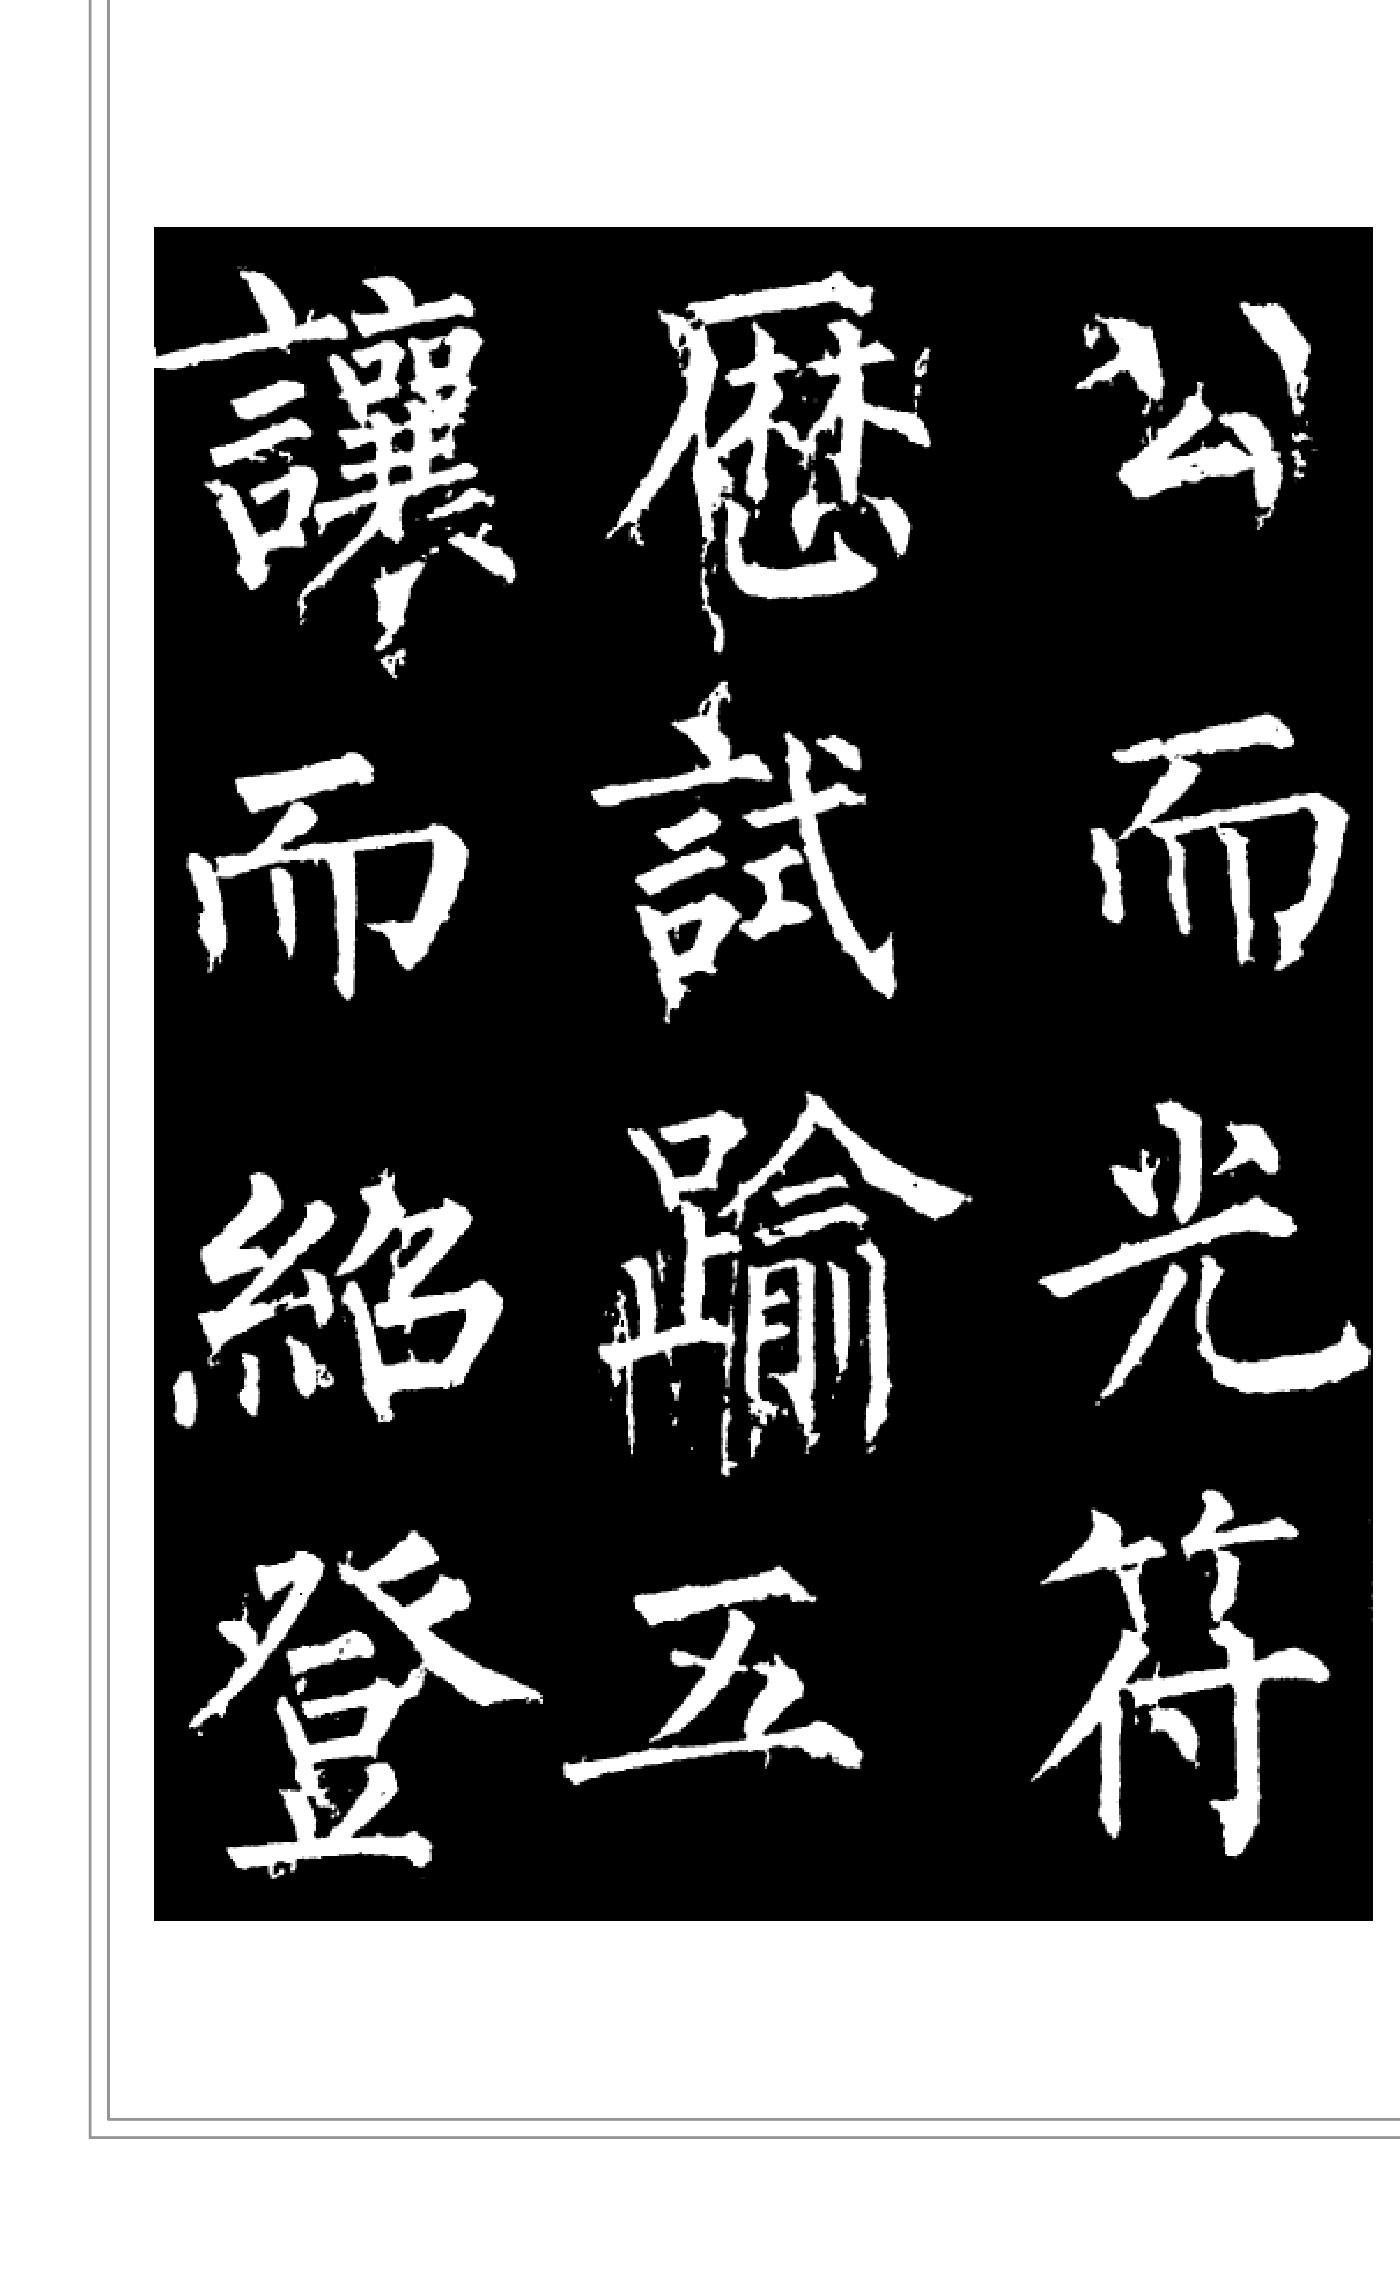 公而光符
歷試踰五
讓而紹登